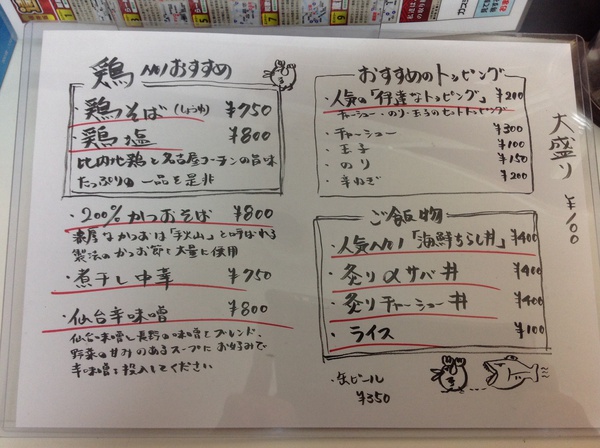 鶏 No1おすすめ
・鶏そば(しょうゆ) ¥750
・鶏塩 ¥800
比内地鶏と名古屋コーチンの旨味
たっぷりの一品を是非
・200%かつおそば ¥800
濃厚なかつおは「秋山」と呼ばれる
製法のかつお節を大量に使用
・煮干し中華 ¥750
・仙台辛味噌 ¥800
仙台味噌と長野の味噌をブレンド、
野菜の甘みのあるスープにお好みで
辛味噌を投入してください
おすすめのトッピング
・人気の「伊達なトッピング」 ¥200
チャーシュー・のり・玉子のセットトッピング
・チャーシュー ¥300
・玉子 ¥100
・のり ¥150
・辛ねぎ ¥200
ご飯物
・人気No1「海鮮ちらし丼」 ¥400
・炙り〆サバ丼 ¥400
・炙りチャーシュー丼 ¥400
・ライス ¥100
・缶ビール
¥350
大盛り ¥100